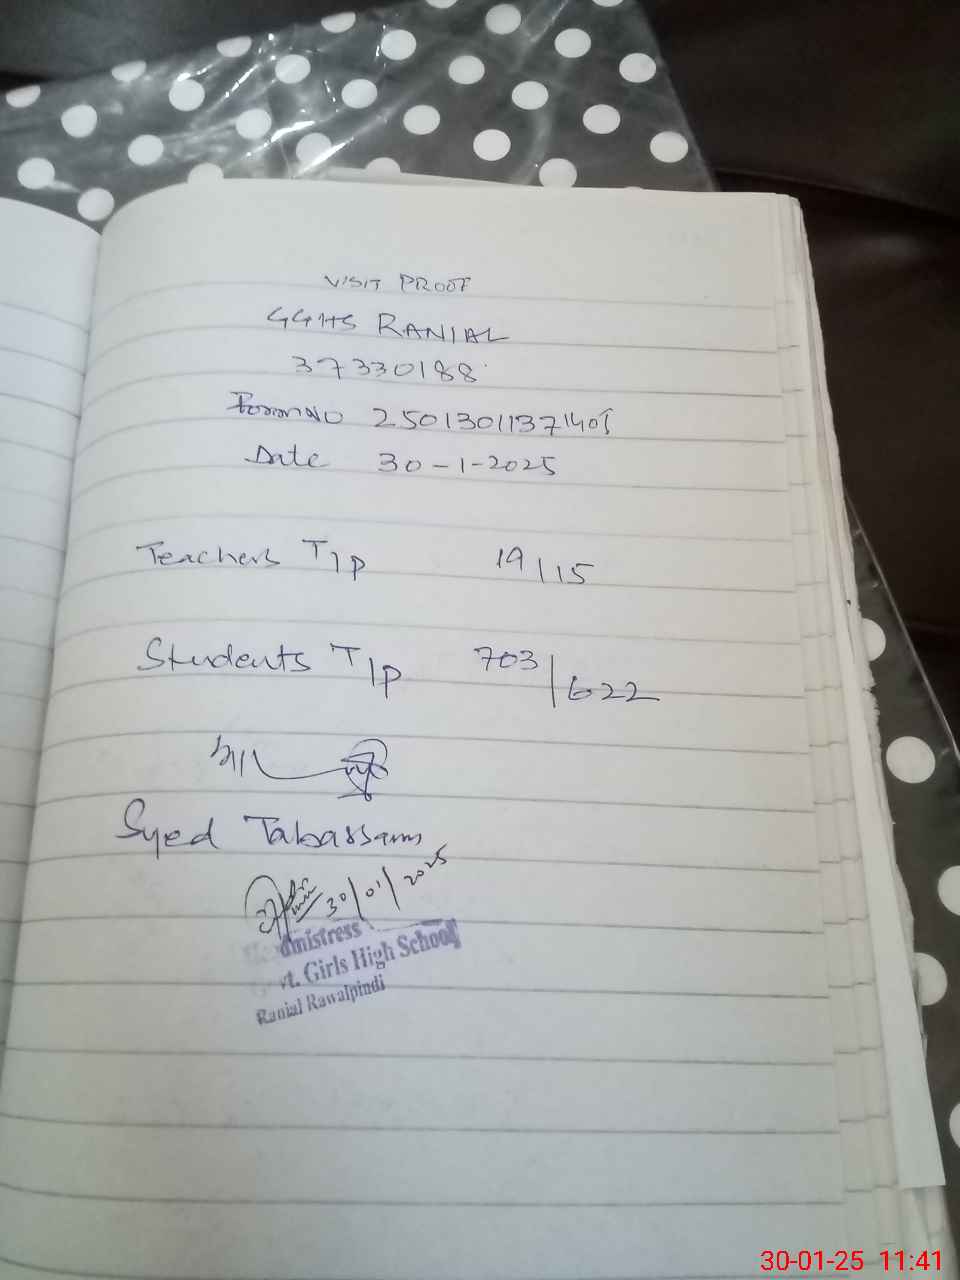 VISIT PROOF
GGHS RANIAL
37330188
Form NO 25013011371405
Date 30-1-2025
Teachers T/P 19/15
Students T/P 703/622
Syed Tabassam
30/01/2025
Headmistress
Govt. Girls High School
Ranial Rawalpindi
30-01-25 11:41